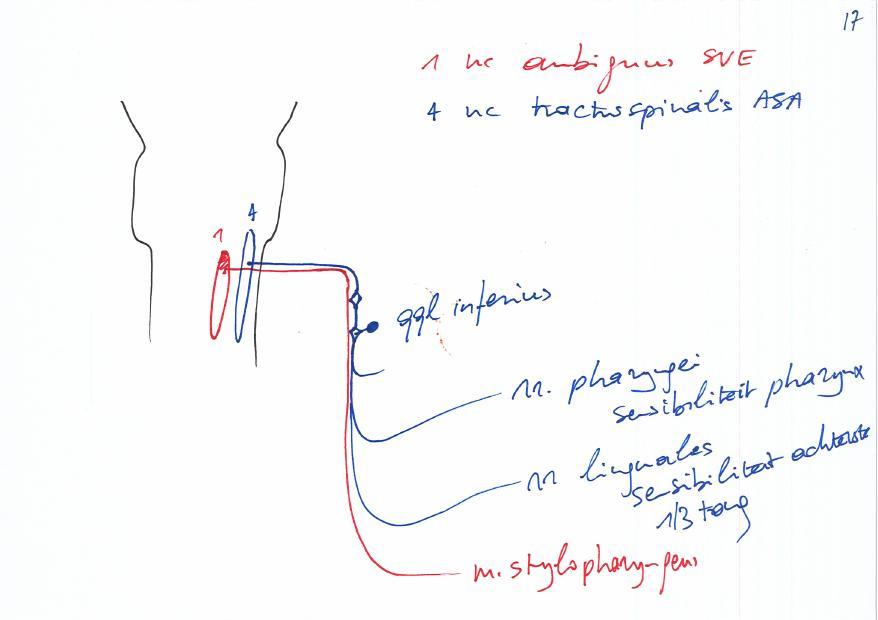 17
1 nc ambiguus SVE
4 nc tractus spinalis ASA
4
1
ggl inferius
nn. pharyngei
sensibiliteit pharynx
nn linguales
sensibiliteit achterste
1/3 tong
m. stylopharyngeus